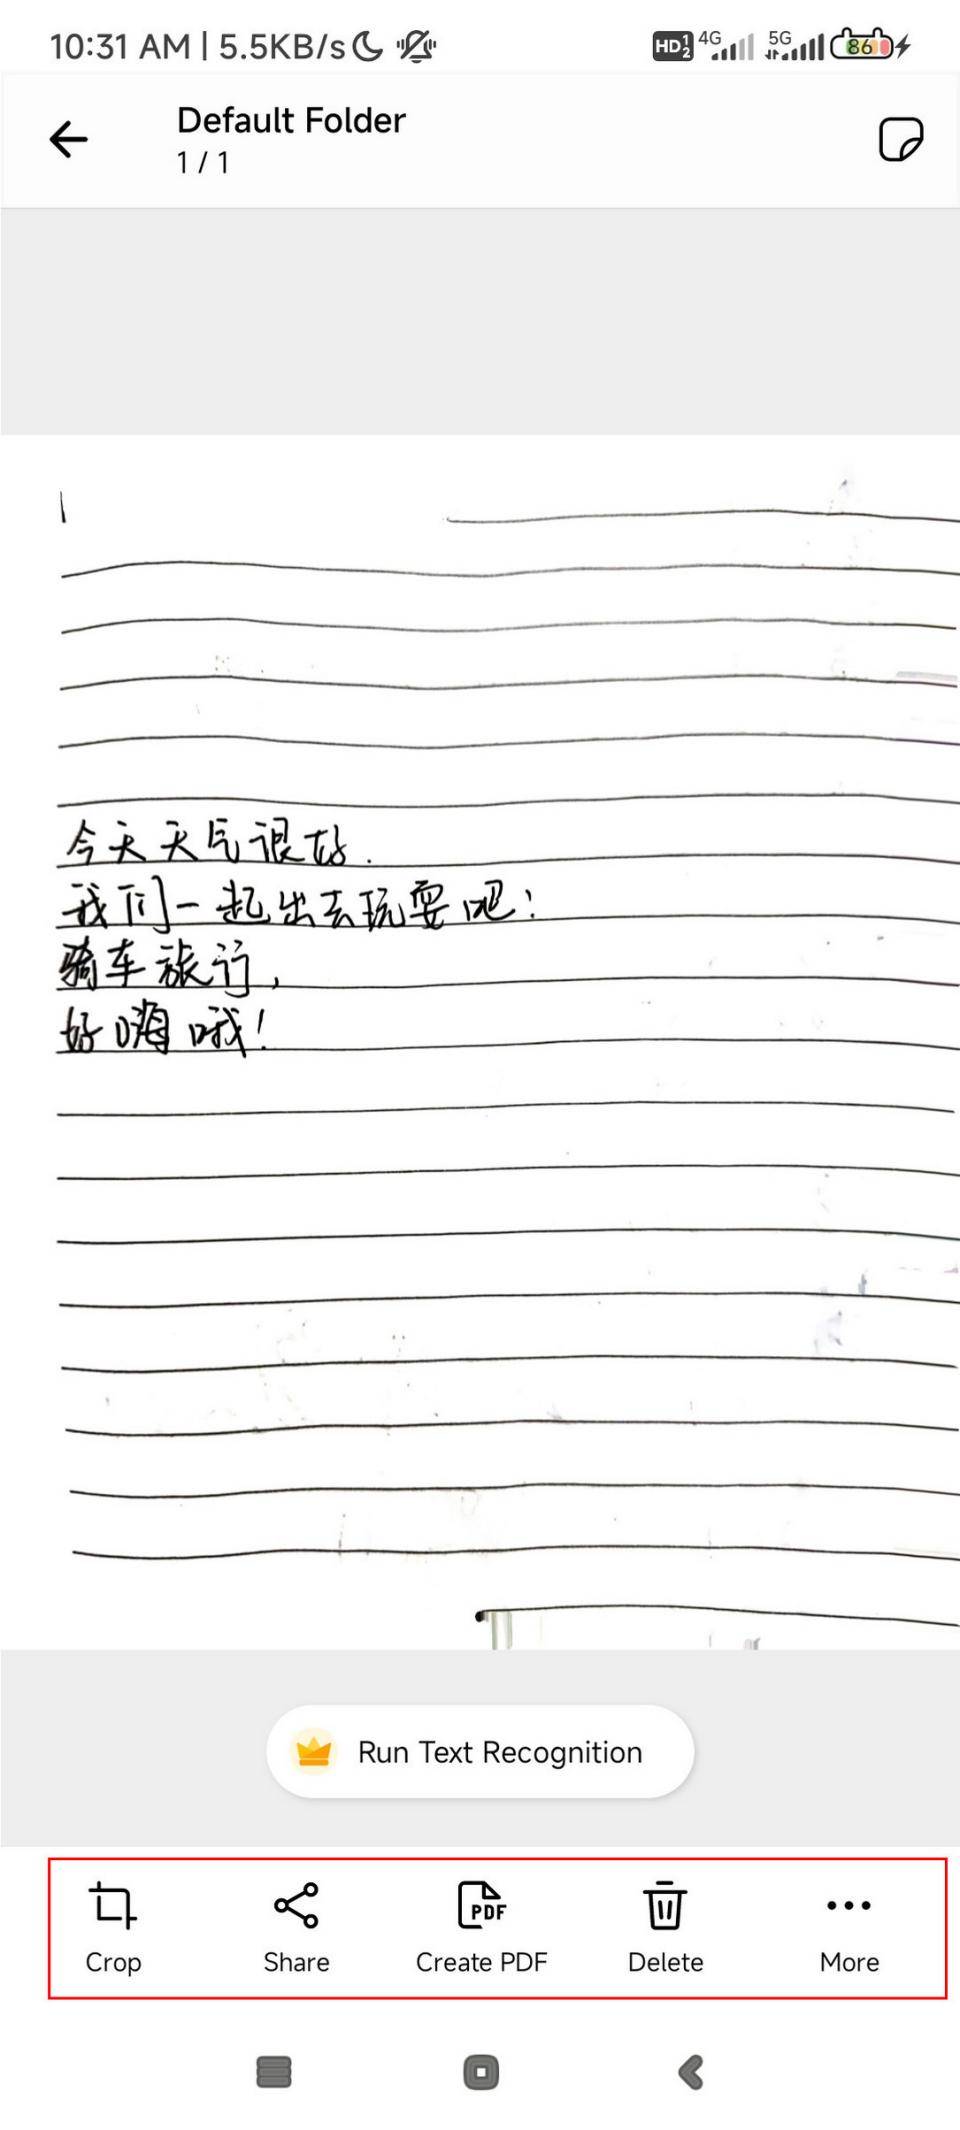 10:31 AM | 5.5KB/s HD 1 2 4G 5G 86
Default Folder
1 / 1
今天天气很好.
我们一起出去玩耍吧!
骑车旅行,
好嗨哦!
Run Text Recognition
PDF
Crop Share Create PDF Delete More